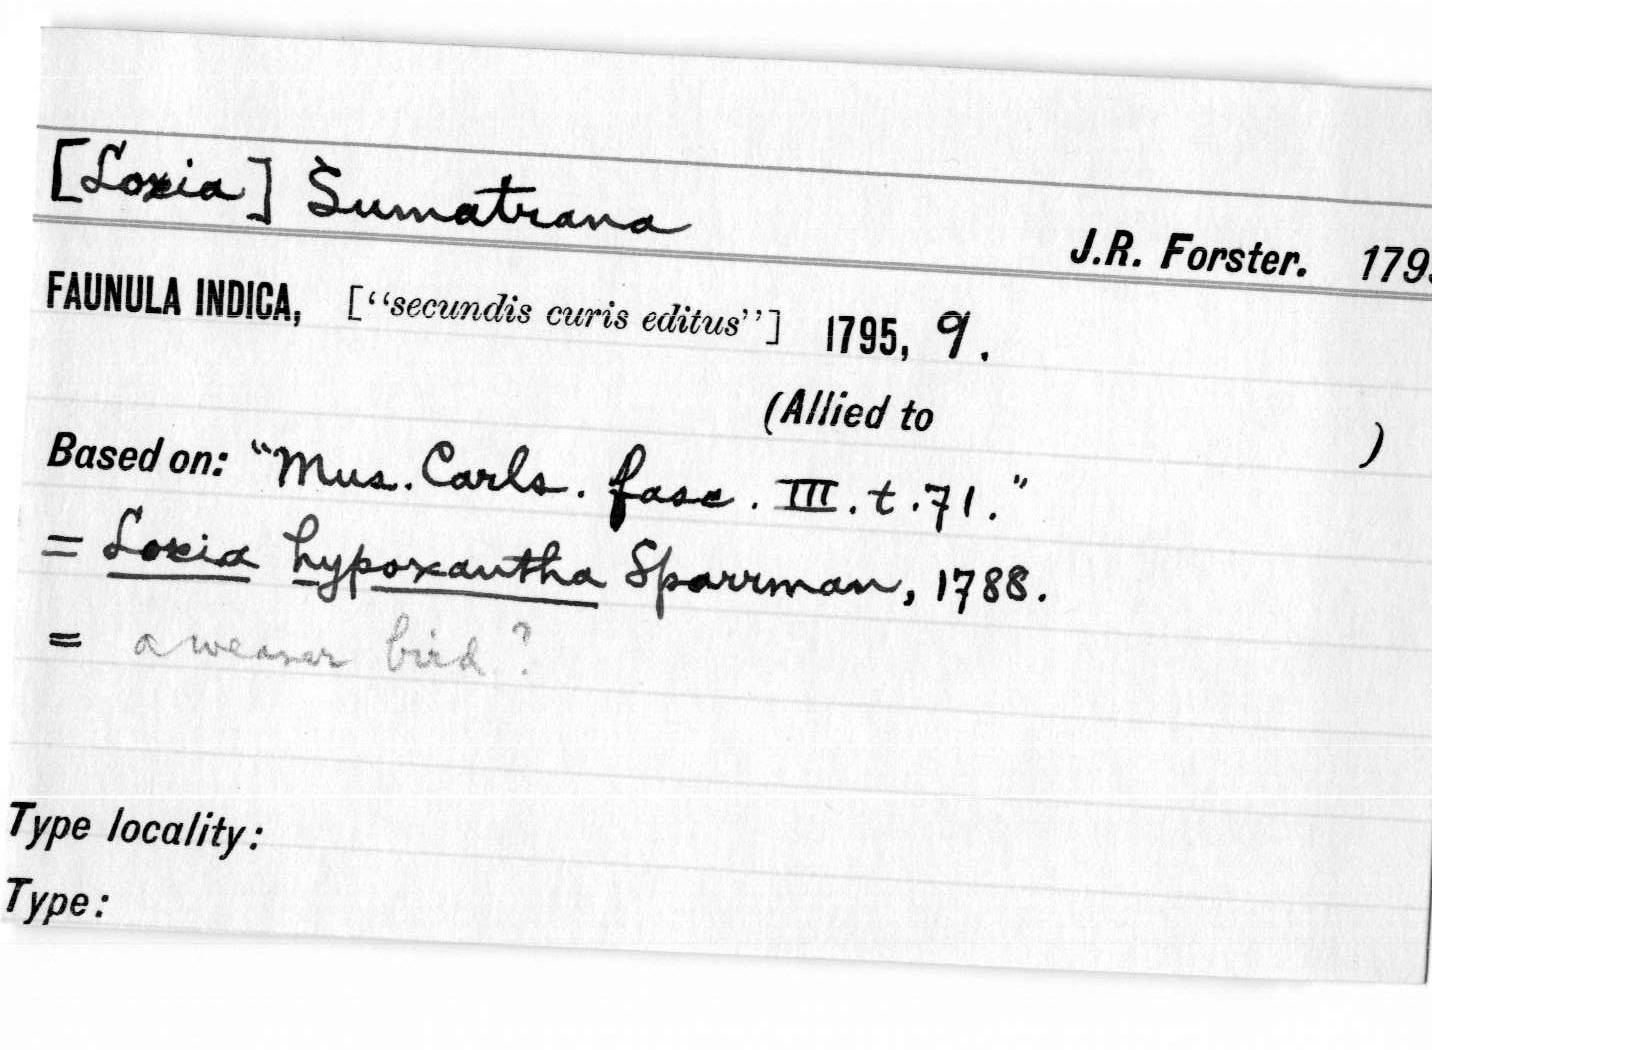 [Loxia] Sumatrana
J.R. Forster. 179
FAUNULA INDICA, ["secundis curis editus"] 1795, 9.
(Allied to )
Based on: "Mus. Carls. fasc. III. t. 71."
= Loxia hypoxantha Sparrman, 1788.
= a weaver bird?
Type locality:
Type: